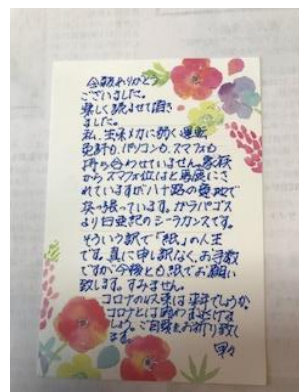 会報ありがとう
ございました。
楽しく読ませて頂き
ました。
私、生来メカに弱く運転
免許も、パソコンも、スマフォも
持ち合わせていません。家族
からスマフォ位はと馬鹿にさ
れていますが八十路の意地で
突っ張っています。ガラパゴス
より白亜紀のシーラカンスです。
そういう訳で「紙」の人生
です。真に申し訳なく、お手数
ですが今後とも紙でお願い
致します。すみません。
コロナの収束は来年でしょうか。
コロナとは
しょう。ご自愛をお祈り致し
ます。